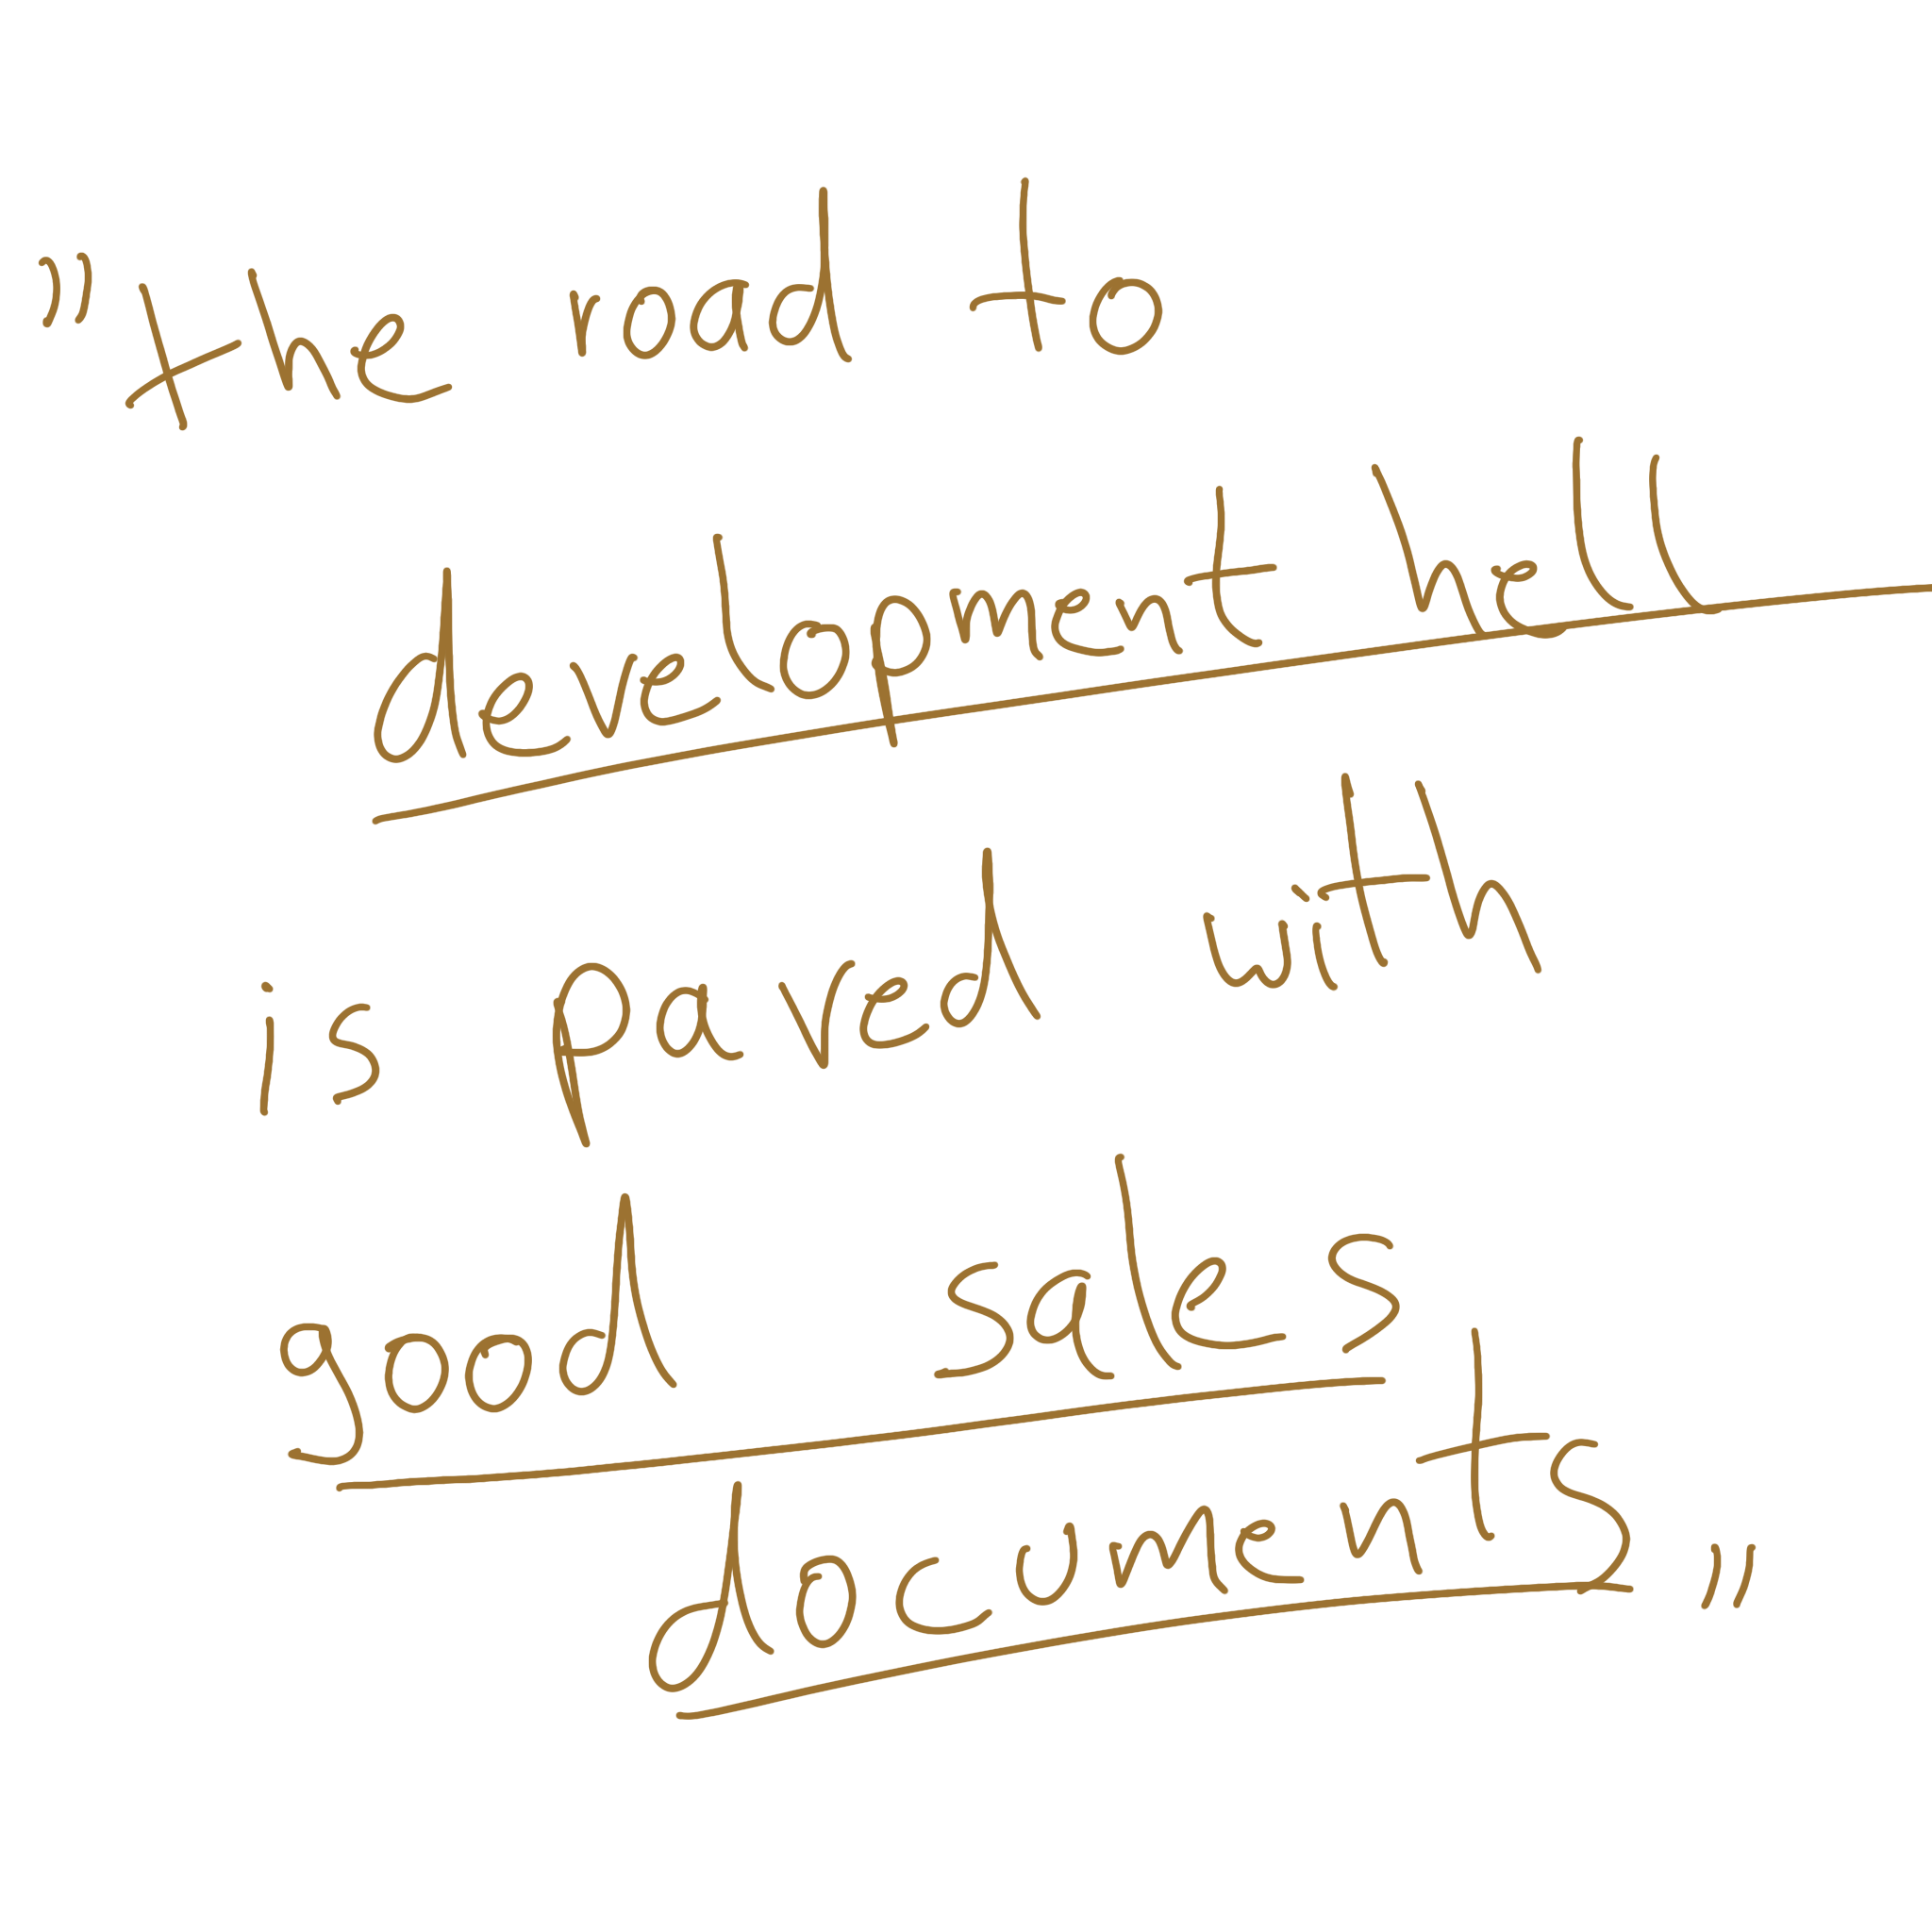 "the road to
development hell
is paved with
good sales
documents"